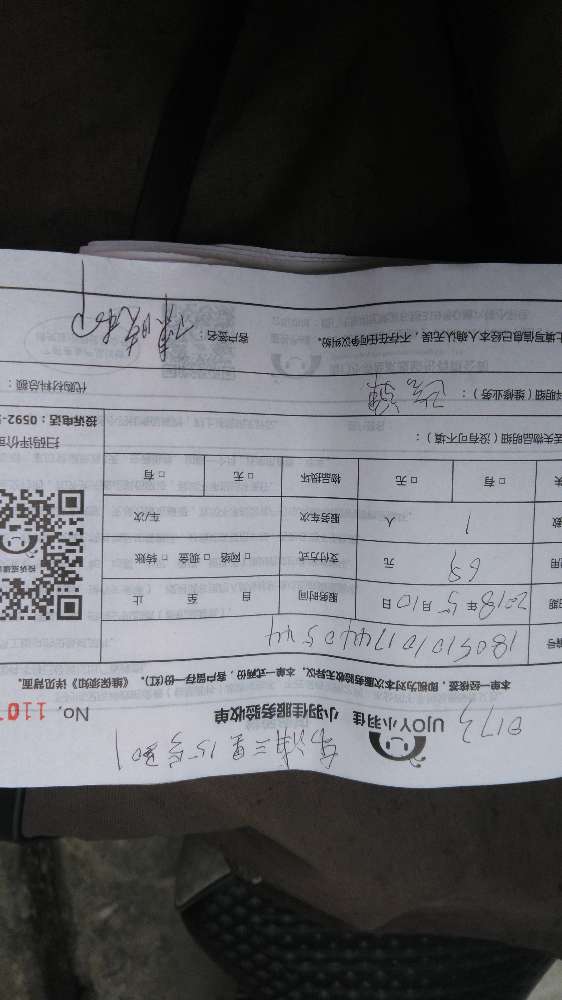 0173
UJOY小羽佳 小羽佳服务验收单 No. 110
本单一经签接,即视为对本次服务验收无异议,本单一式两份,客户留存一份(红)。《维保须知》详见背面。
编号 1805101017440544
日期 2018年5月10日 服务时间 自 至 止
费用 69 元 支付方式 □网络 □现金 □转账
人数 1 人 服务车次 车/次
□有 □无 物品损坏 □无 □有
丢失物品明细(没有可不填):
投诉或建议
扫码评价或
投诉电话:0592-5
明细(维修业务):
代购材料总额:
上填写信息已经本人确认无误,不存在任何争议纠纷。 客户签名: